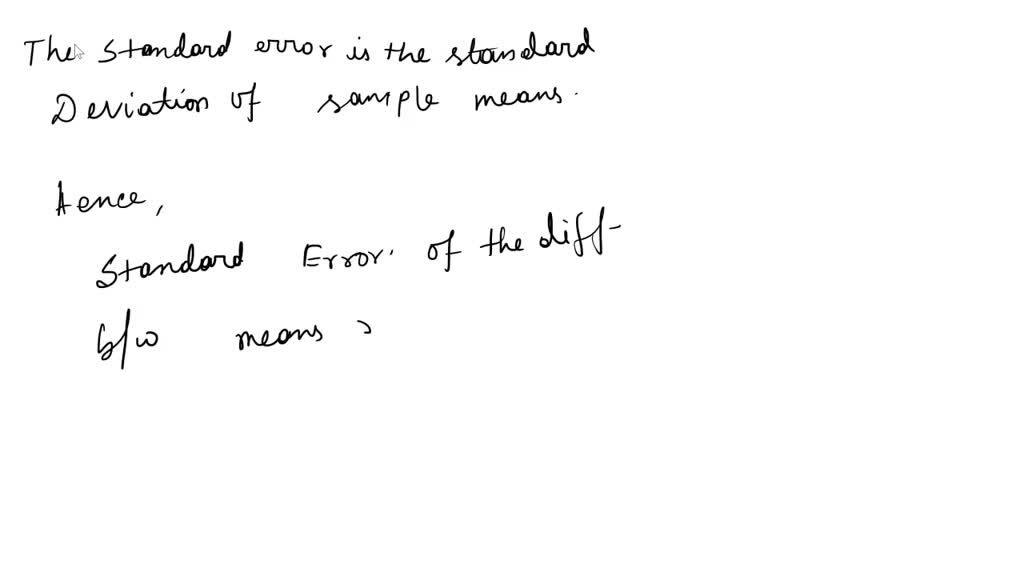 The standard error is the standard
Deviation of sample means.
Hence,
Standard Error of the diff-
b/w means